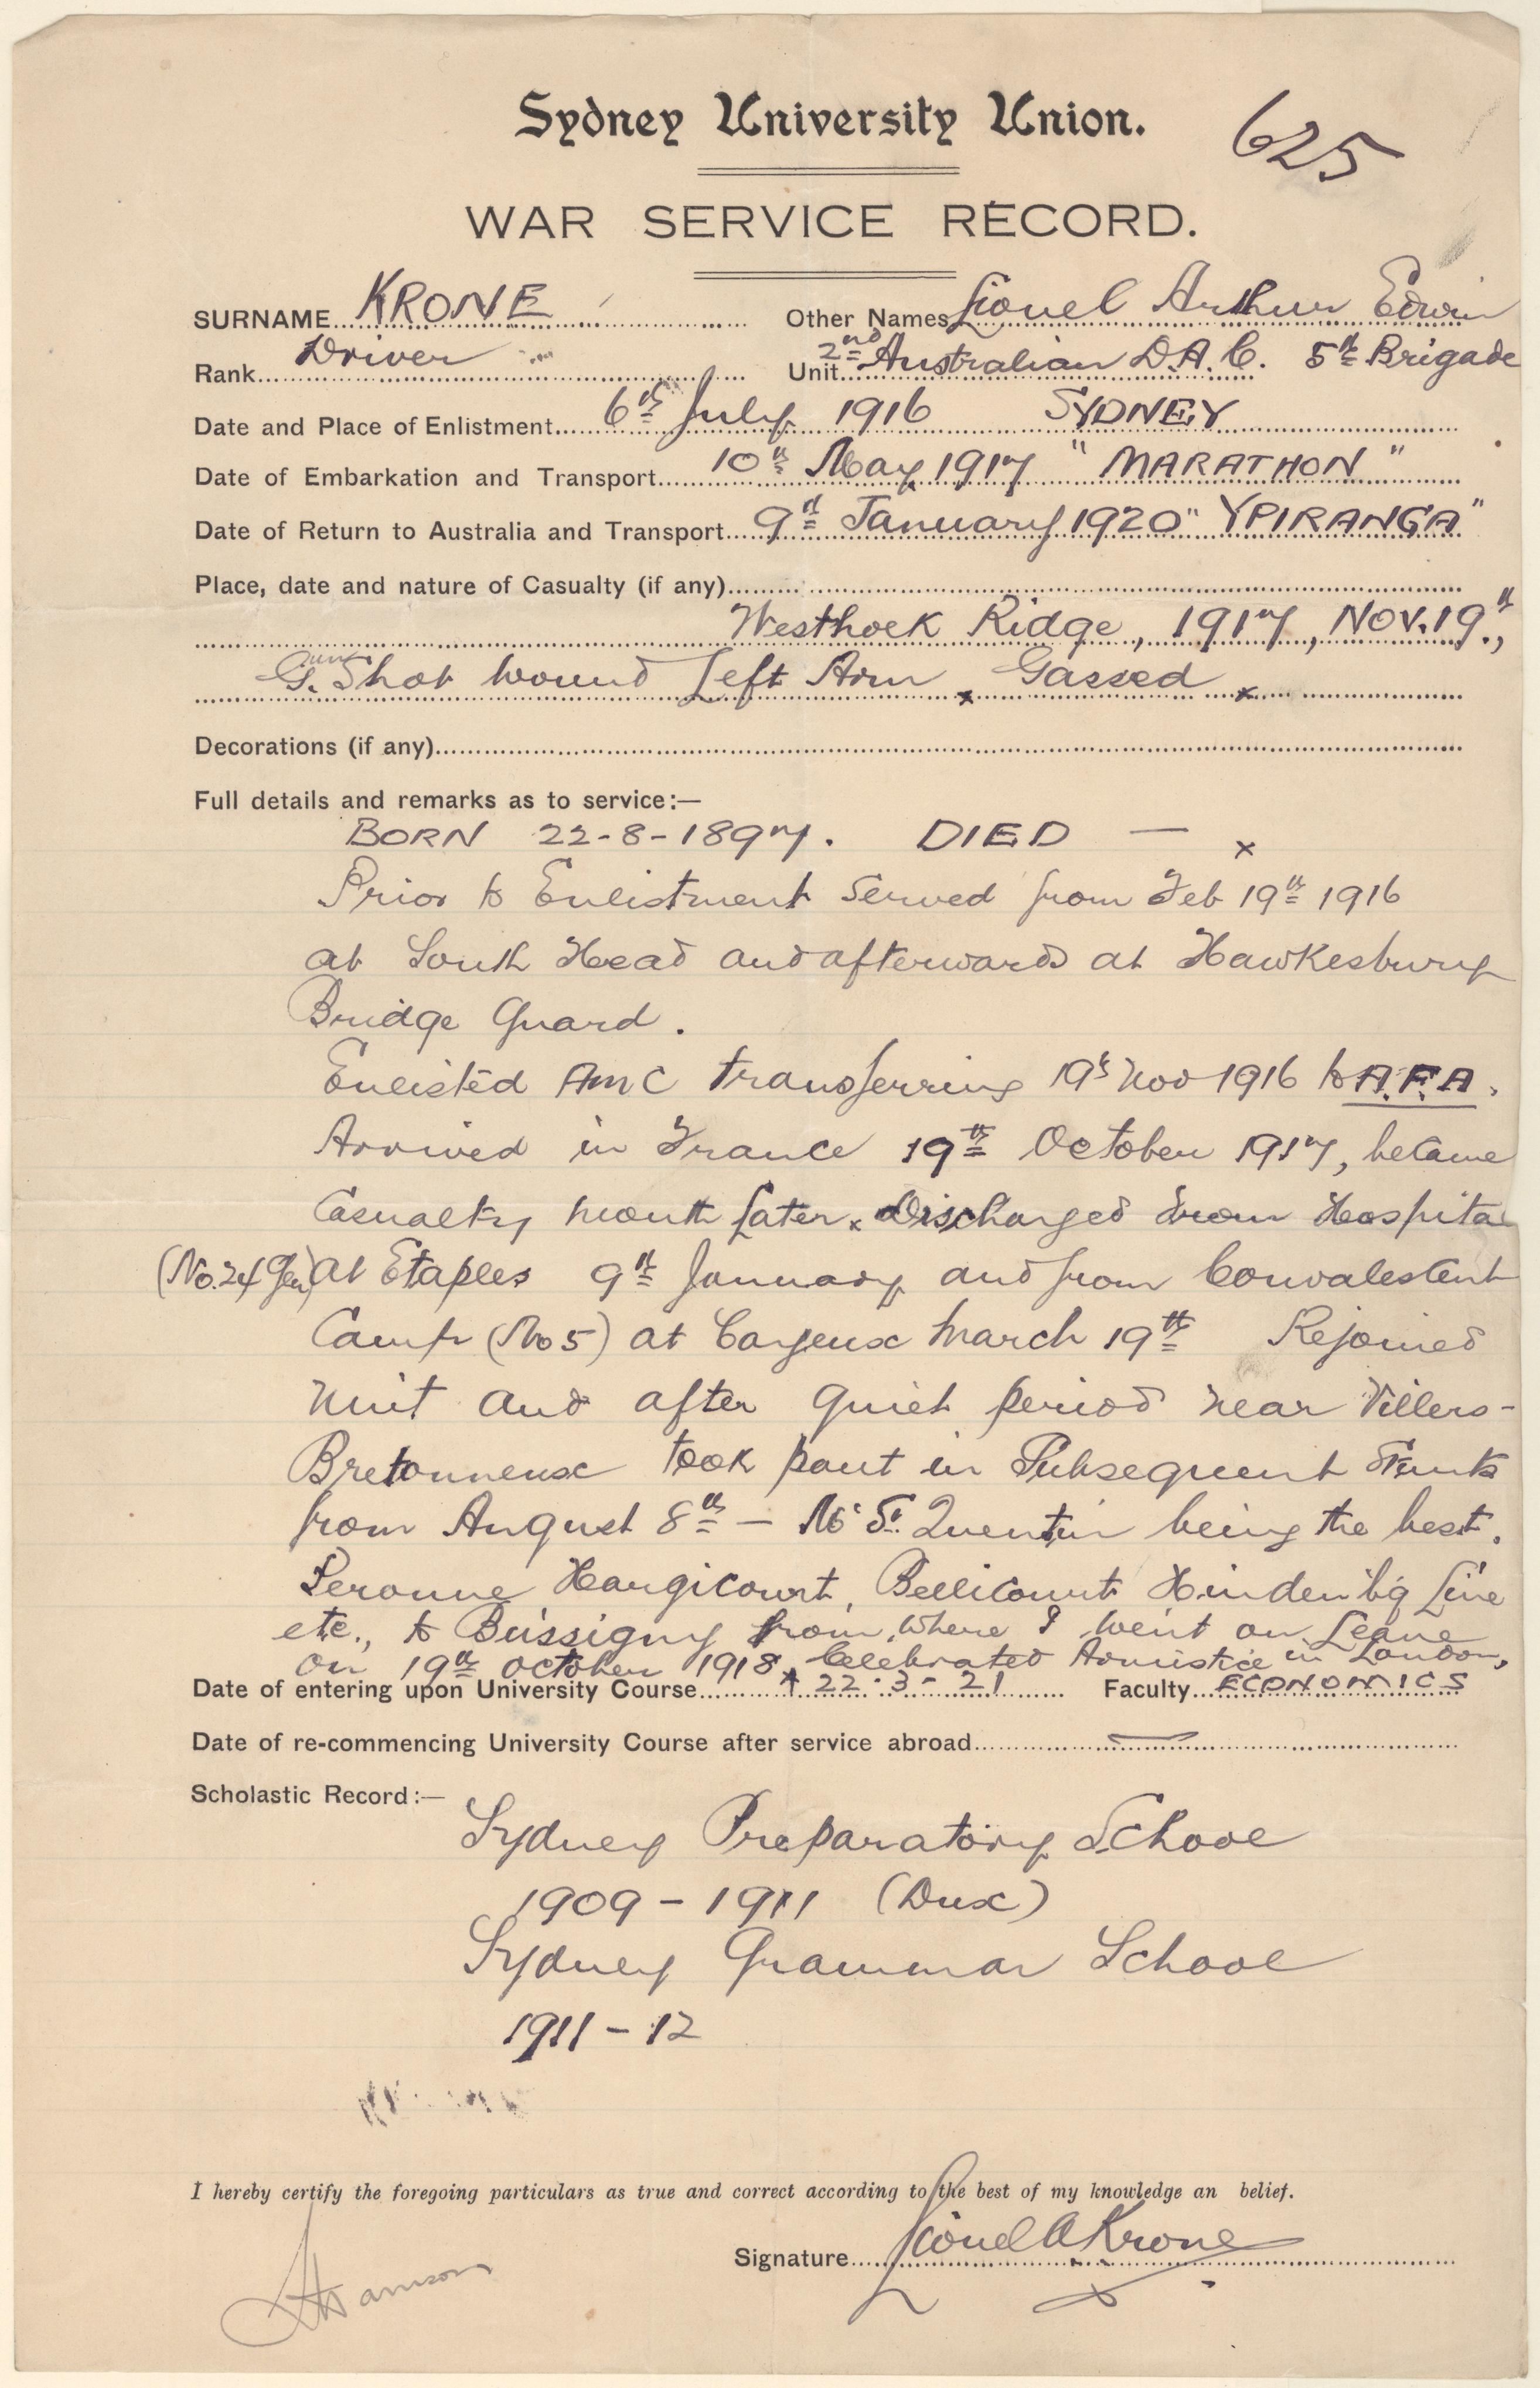 Sydney University Union.
625
WAR SERVICE RECORD.
SURNAME KRONE Other Names Lionel Arthur Edwin
Rank Driver Unit 2nd Australian D.A.C. 5th Brigade
Date and Place of Enlistment 6th July 1916 SYDNEY
Date of Embarkation and Transport 10th May 1917 "MARATHON"
Date of Return to Australia and Transport 9th January 1920 "YPIRANGA"
Place, date and nature of Casualty (if any)
Westhoek Ridge, 1917, NOV. 19th,
G. Shot wound Left Arm x Gassed x
Decorations (if any)
Full details and remarks as to service:—
BORN 22-8-1897. DIED — x
Prior to Enlistment served from Feb 19th 1916
at South Head and afterwards at Hawkesbury
Bridge Guard.
Enlisted AMC transferring 19th Nov 1916 to A.F.A.
Arrived in France 19th October 1917, became
Casualty month later x Discharged from Hospital
(No. 24 Gen) at Etaples 9th January and from Convalescent
Camp (No 5) at Cayeux March 19th Rejoined
Unit and after quiet period near Villers-
Bretonneux took part in Subsequent Stunts
from August 8th — Mt St. Quentin being the best.
Peronne Hargicourt, Bellicourt Hindenb'g Line
etc., to Bussigny from where I went on Leave
on 19th October 1918, Celebrated Armistice in London,
Date of entering upon University Course 22-3-21 Faculty ECONOMICS
Date of re-commencing University Course after service abroad —
Scholastic Record:—
Sydney Preparatory School
1909 - 1911 (Dux)
Sydney Grammar School
1911 - 12
I hereby certify the foregoing particulars as true and correct according to the best of my knowledge an belief.
Signature Lionel A Krone